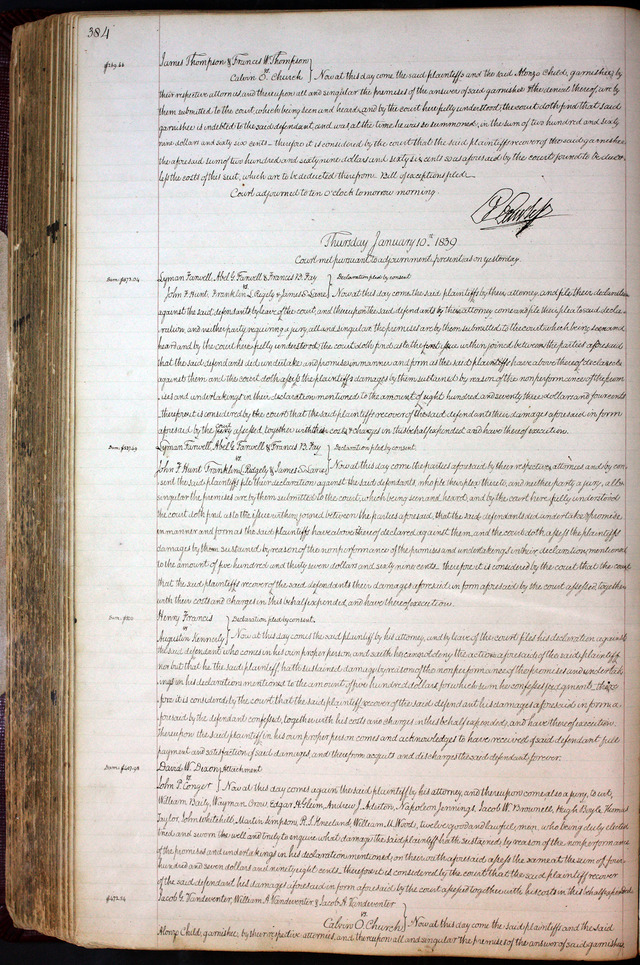 384
$269.66
James Thompson & Francis W. Thompson
vs
Calvin O. Church } Now at this day come the said plaintiffs and the said Alonzo Child, garnishee, by
their respective attornies and thereupon all and singular the premises of the answer of said garnishee & the denial thereof, are by
them submitted to the court, which being seen and heard, and by the court here fully understood, the court doth find that said
garnishee is indebted to the said defendant, and was, at the time he was so summoned, in the sum of two hundred and sixty
nine dollars and sixty six cents — therefore it is considered by the court that the said plaintiffs recover of the said garnishee
the aforesaid sum of two hundred and sixty nine dollars and sixty six cents so as aforesaid by the court found to be due
less the costs of this suit, which are to be deducted therefrom. Bill of exceptions filed.
Court adjourned to ten o'clock tomorrow morning.
Thursday January 10th 1839
Court met pursuant to adjournment, present as on yesterday.
Dam: $873.04
Lyman Farwell, Abel G. Farwell & Francis B. Fay } Declaration filed by consent
vs
John F. Hunt, Franklin L. Ridgely & James S. Lane } Now at this day come the said plaintiffs by their attorney, and file their declaration
against the said defendants by leave of the court, and thereupon the said defendants by their attorney come and file their plea to said decla-
ration, and neither party requiring a jury, all and singular the premises are by them submitted to the court which being seen and
heard and by the court here fully understood, the court doth find as to the issue within joined between the parties aforesaid
that the said defendants did undertake and promise in manner and form as the said plaintiffs have above thereof declared
against them and the court doth assess the plaintiffs damages by them sustained by reason of the nonperformance of the prom-
ises and undertakings in their declaration mentioned to the amount of eight hundred and seventy three dollars and four cents
therefore it is considered by the court that the said plaintiffs recover of the said defendants their damages aforesaid in form
aforesaid by the court assessed together with their costs & charges in this behalf expended and have thereof execution.
Dam: $537.69
Lyman Farwell, Abel G. Farwell & Francis B. Fay } Declaration filed by consent.
vs
John F. Hunt, Franklin L. Ridgely & James S. Lane } Now at this day come the parties aforesaid by their respective attornies and by con-
sent the said plaintiffs file their declaration against the said defendants, who file their plea thereto, and neither party a jury, all &
singular the premises are by them submitted to the court, which being seen and heard, and by the court here fully understood
the court doth find as to the issue within joined between the parties aforesaid, that the said defendants did undertake & promise
in manner and form as the said plaintiffs have above thereof declared against them, and the court doth assess the plaintiffs
damages by them sustained by reason of the nonperformance of the promises and undertakings in their declaration mentioned
to the amount of five hundred and thirty seven dollars and sixty nine cents — therefore it is considered by the court that the court
that the said plaintiffs recover of the said defendants their damages aforesaid in form aforesaid by the court assessed together
with their costs and charges in this behalf expended, and have thereof execution.
Dam: $500
Henry Frances } Declaration filed by consent.
vs
Augustin Kennerly } Now at this day comes the said plaintiff by his attorney, and by leave of the court files his declaration against
the said defendant who comes in his own proper person and saith he cannot deny the action aforesaid of the said plaintiff
nor but that he the said plaintiff hath sustained damage by reason of the nonperformance of the promises and undertak-
ings in his declaration mentioned to the amount of five hundred dollars for which sum he confesses judgment. there-
fore it is considered by the court that the said plaintiff recover of the said defendant his damages aforesaid in form a-
foresaid by the defendant confessed, together with his costs and charges in this behalf expended, and have thereof execution.
Thereupon the said plaintiff in his own proper person comes and acknowledges to have received of said defendant full
payment and satisfaction of said damages, and therefrom acquits and discharges the said defendant forever.
Dam: $407.98
David W. Dixon } Attachment
vs
John P. Conger } Now at this day comes again the said plaintiff by his attorney, and thereupon come also a jury, to wit,
William Baily, Wayman Crow, Edgar H. Gleim, Andrew J. Aduston, Napoleon Jennings, Jacob W. Brownell, Hugh Boyle, Thomas
Taylor, John Whitehill, Martin Simpson, R. S. Kneeland, William M. Woods, twelve good and lawful men, who being duly elected
tried and sworn the well and truly to enquire what damage the said plaintiff hath sustained by reason of the nonperformance
of the promises and undertakings in his declaration mentioned, on their oath aforesaid assess the same at the sum of four
hundred and seven dollars and ninety eight cents. therefore it is considered by the court that the said plaintiff recover
of the said defendant his damages aforesaid in form aforesaid, by the court assessed together with his costs in this behalf expended
$473.54
Jacob G. Vandeventer, William A. Vandeventer & Jacob H. Vandeventer
vs
Calvin O. Church } Now at this day come the said plaintiffs and the said
Alonzo Child, garnishee, by their respective attornies, and thereupon all and singular the premises of the answer of said garnishee